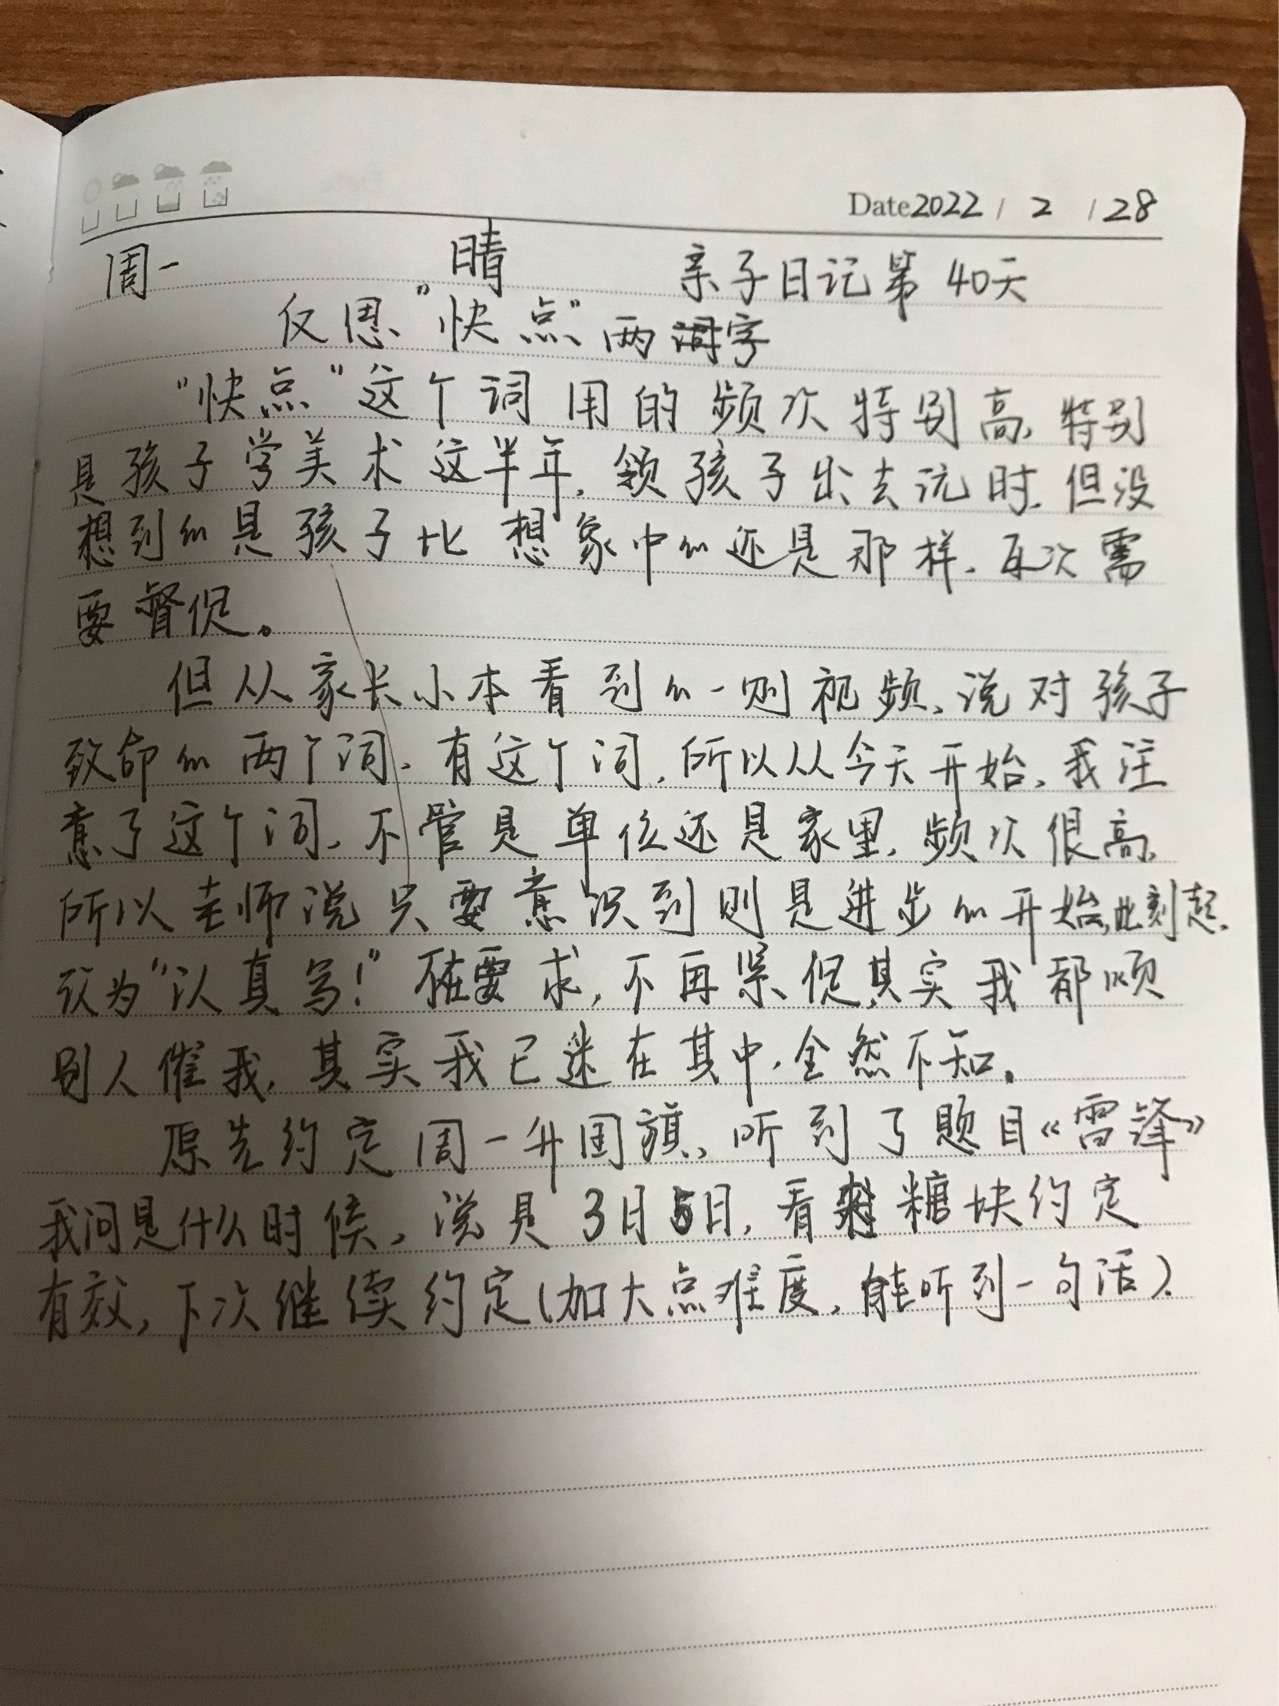 Date 2022 / 2 / 28
周一 晴 亲子日记第40天
反思“快点”两字
“快点”这个词用的频次特别高,特别
是孩子学美术这半年,领孩子出去玩时,但没
想到的是孩子比想象中的还是那样,再次需
要督促。
但从家长小本看到的一则视频,说对孩子
致命的两个词,有这个词,所以从今天开始,我注
意了这个词,不管是单位还是家里,频次很高,
所以老师说只要意识到则是进步的开始,此刻起,
改为“认真写!”不在要求,不再紧促,其实我都烦
别人催我,其实我已迷在其中,全然不知。
原先约定周一升国旗,听到了题目《雷锋》
我问是什么时候,说是3月5日,看来糖块约定
有效,下次继续约定(加大点难度,能听到一句话)。